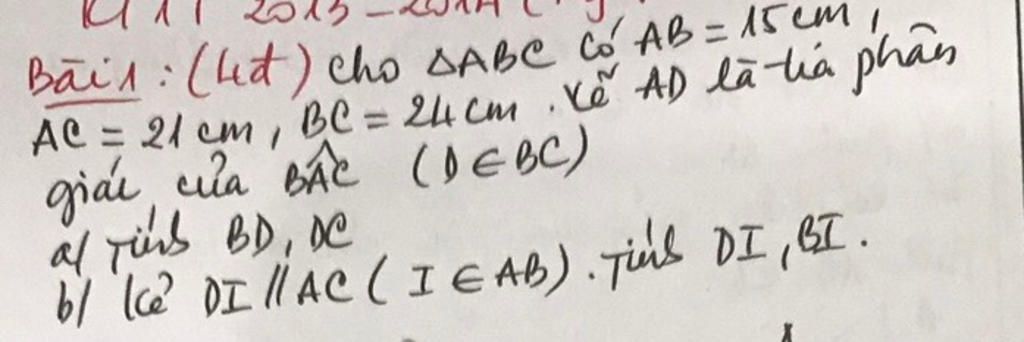 2013-2014
Bài 1: (4đ) cho ΔABC có AB = 15cm,
AC = 21 cm, BC = 24 cm. Kẽ AD là tia phân
giác của BÂC (D ∈ BC)
a/ Tính BD, DC
b/ Kẻ DI // AC ( I ∈ AB). Tính DI, BI.